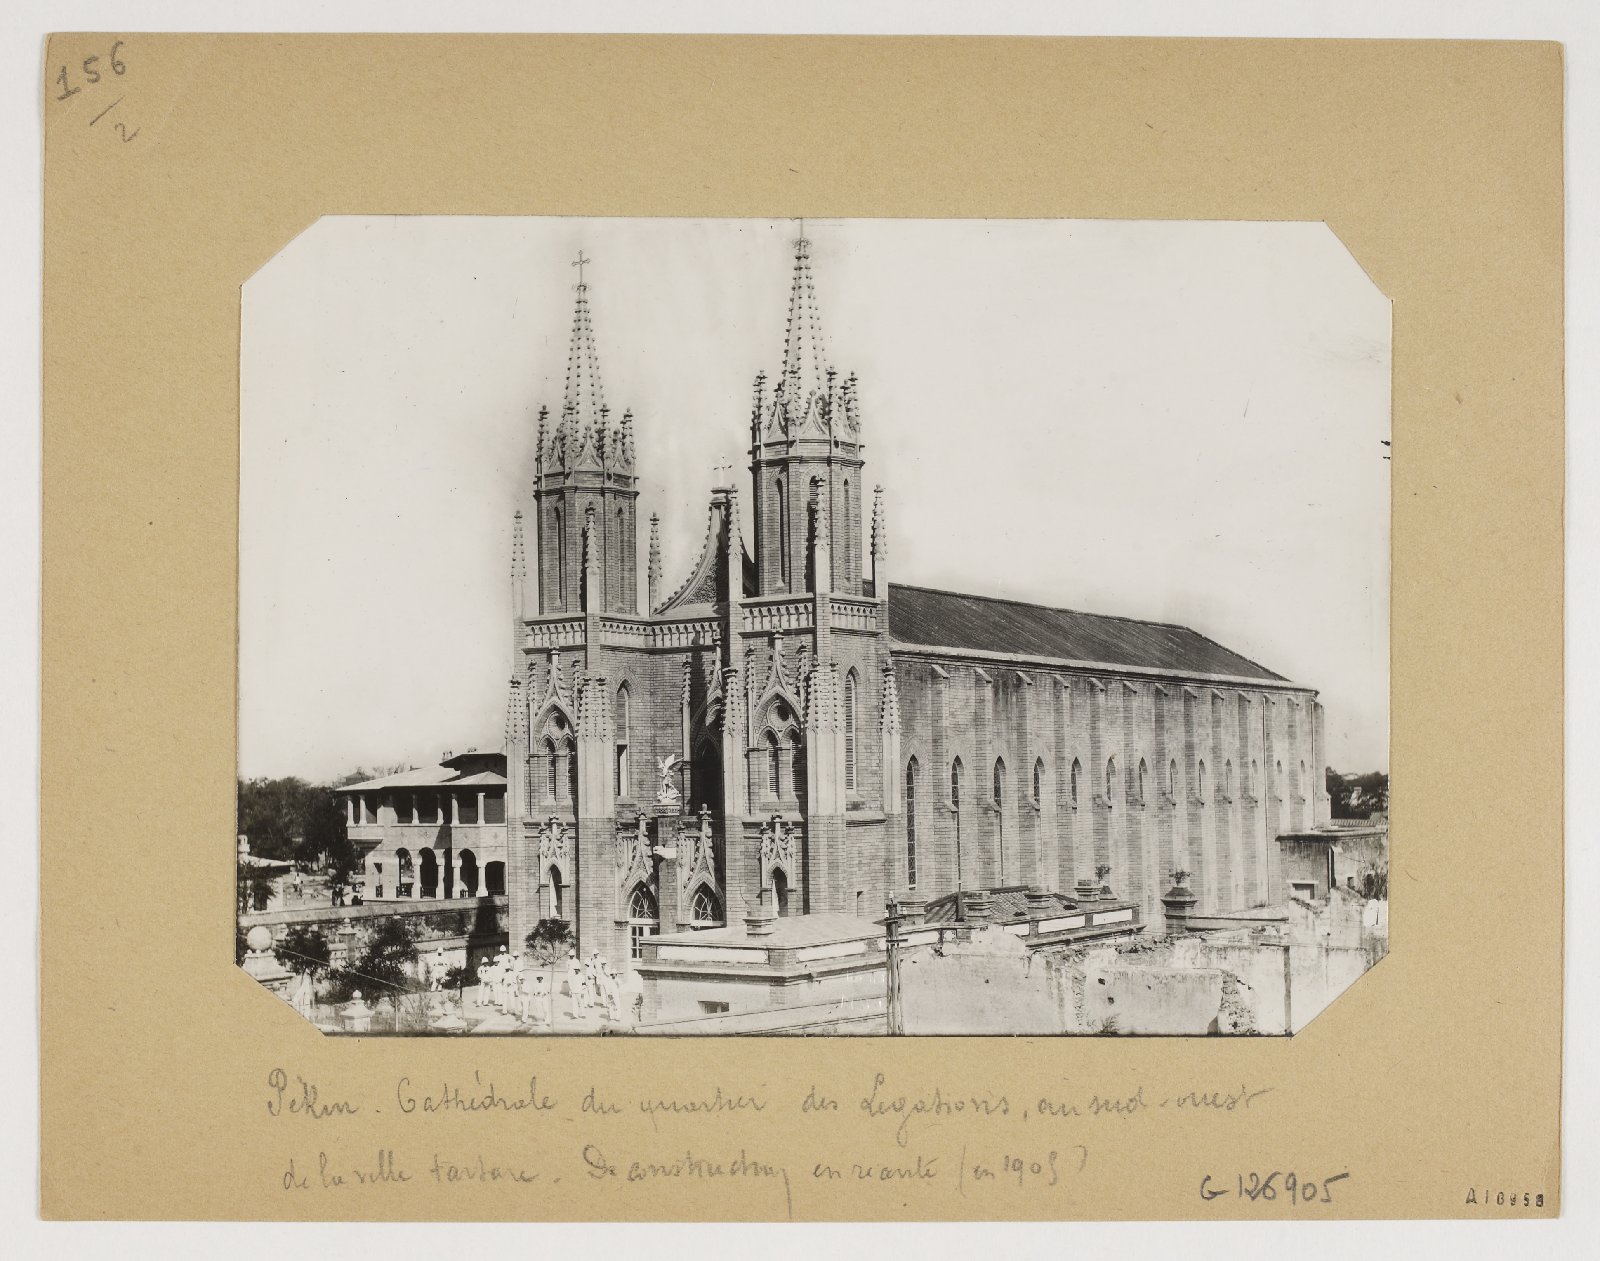 156
/2
Pékin. Cathédrale du quartier des Légations, au sud-ouest
de la ville tartare. De construction récente (en 1905)
G 126905
A18958